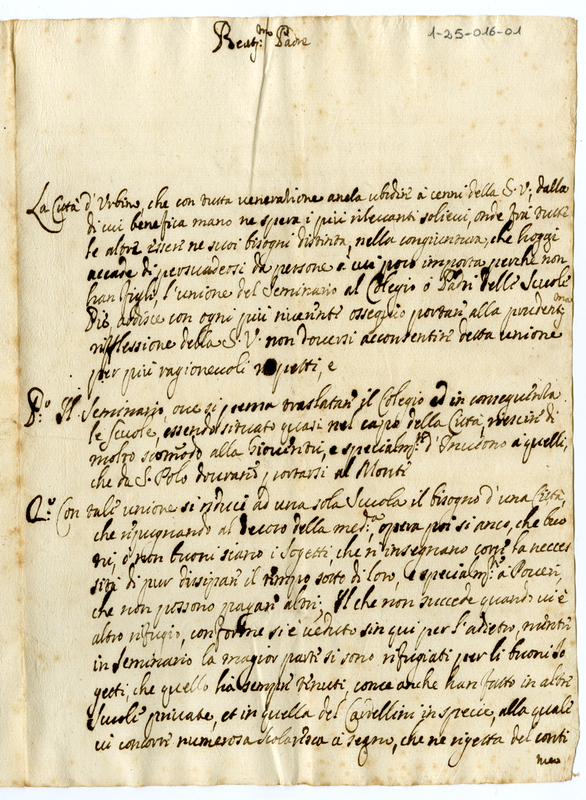 1-25-016-01
Beat.mo Padre
La Città d'Urbino, che con tutta veneratione anela ubidire à cenni della S. V; dalla
di cui benefica mano ne spera i più rilevanti solievi, onde frà tutte
le altre essere ne suoi bisogni distinta, nella congiuntura, che hoggi
accade di persuadersi da persone à cui poco importa perche non
han figli, l'unione del Seminario al Colegio ò Padri delle Scuole
Pie, ardisce con ogni più riverente osseguio portare alla prudent.ma
riflessione della S. V. non doversi acconsentire detta unione
per più ragionevoli rispetti, e
P.o Il Seminario, ove si prema traslatare il Colegio ed in conseguenza
le scuole, essendo situato quasi nel capo della Città, riescire di
molto scomodo alla Gioventù, e specialm.te d'Inverno a quelli,
che da S. Polo dovranno portarsi al Monte
2.o Con tale unione si riduce ad una sola Scuola il bisogno d'una Città,
che ripugnando al decoro della med.a, opera poi si anco, che buo
ni, ò non buoni siano i sogetti, che v'insegnano corre la neces
sità di pur dissipare il tempo sotto di loro, e specialm.te à Poveri,
che non possono pagare altri; Il che non succede quando vi è
altro rifugio, conforme si è veduto sin qui per l'adietro, mentre
in Seminario la magior parte si sono rifugiati per li buoni So
getti, che quello hà sempre tenuti, come anche han fatto in altre
scuole private, et in quella del Cardellini in specie, alla quale
vi concorre numerosa scolaresca à segno, che ne rigetta del conti
nuo